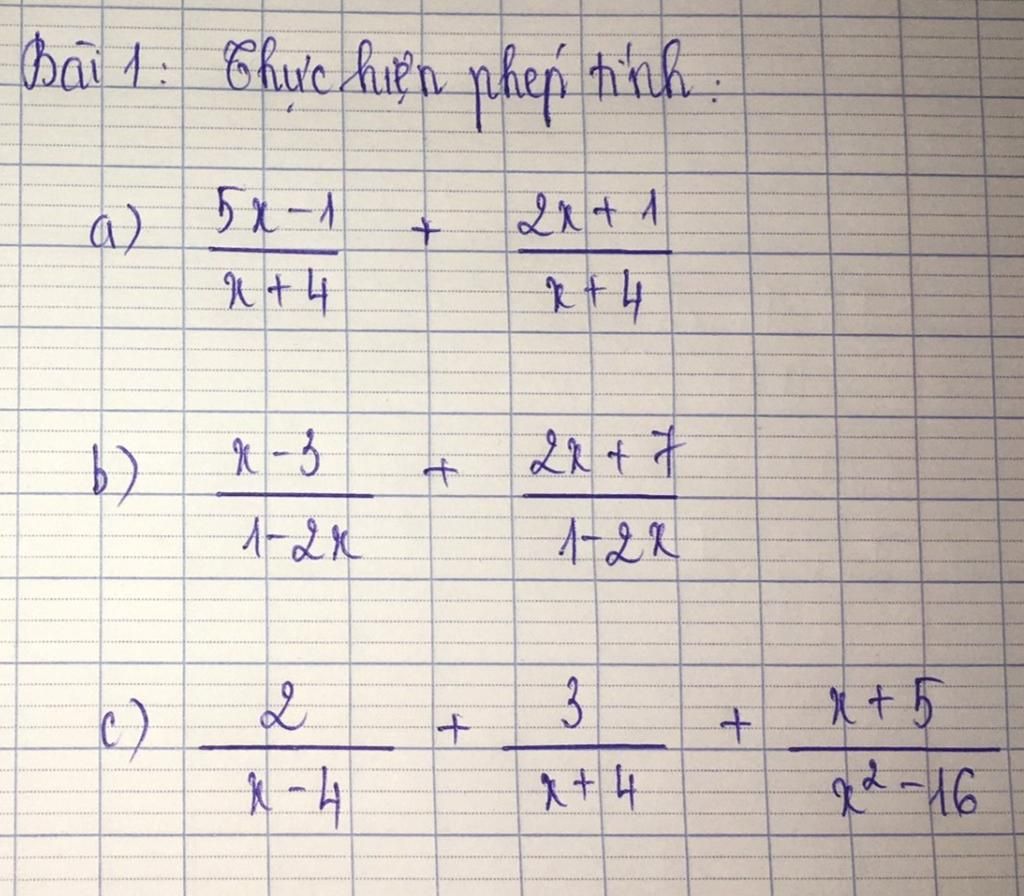 Bài 1: Thực hiện phép tính:
a) \frac{5x-1}{x+4} + \frac{2x+1}{x+4}
b) \frac{x-3}{1-2x} + \frac{2x+7}{1-2x}
c) \frac{2}{x-4} + \frac{3}{x+4} + \frac{x+5}{x^2-16}